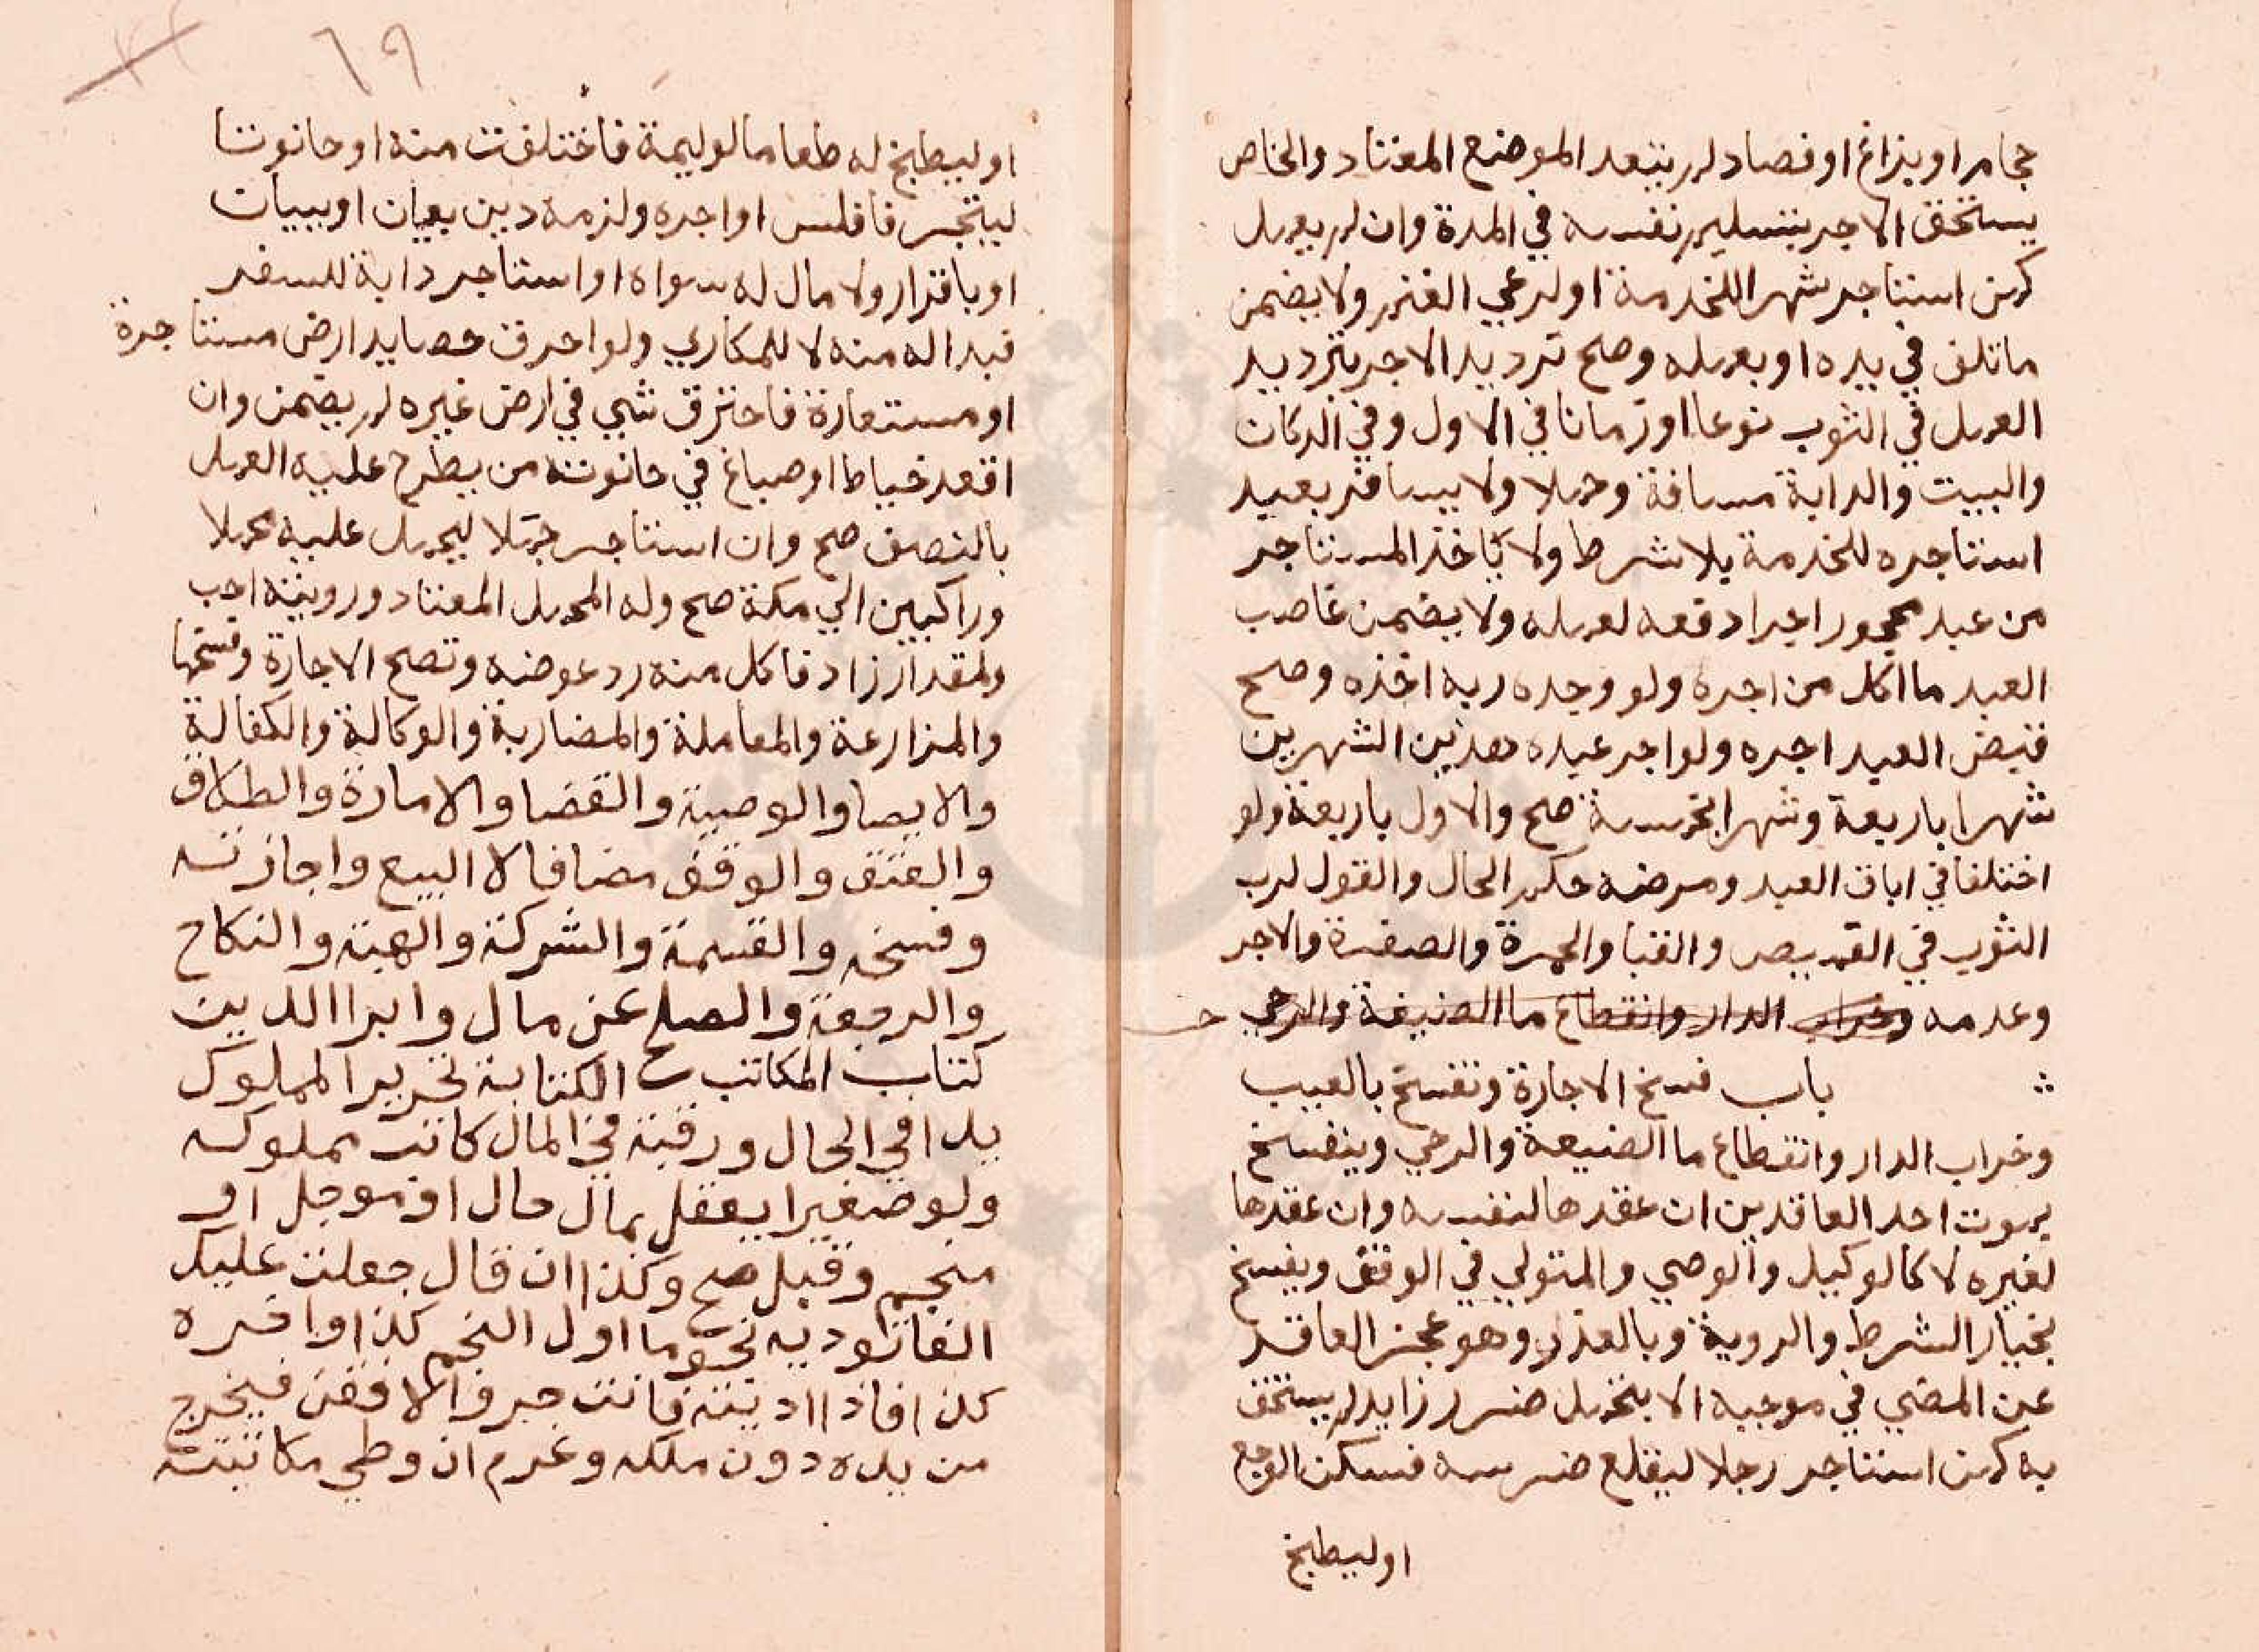 حجام او بزاغ او فصاد لم يتعد الموضع المعتاد والخاص
يستحق الاجر بتسليم نفسه في المدة وان لم يعمل
كمن استاجر شهرا للخدمة او لرعي الغنم ولا يضمن
ما تلف في يده او بعمله وصح ترديد الاجر بترديد
العمل في الثوب نوعا او زمانا في الاول وفي الدكان
والبيت والدابة مسافة وحملا ولا يسافر بعبد
استاجره للخدمة بلا شرط ولا ياخذ المستاجر
من عبد محجور اجرا دفعه لعمله ولا يضمن غاصب
العبد ما اكل من اجره ولو وجده ربه اخذه وصح
قبض العبد اجره ولو اجر عبده هذين الشهرين
شهرا باربعة وشهرا بخمسة صح والاول باربعة ولو
اختلفا في اباق العبد ومرضه حكم الحال والقول لرب
الثوب في القميص والقبا والحمرة والصفرة والاجر
وعدمه وخراب الدار وانقطاع ما الضيعة والرحي
باب فسخ الاجارة وتفسخ بالعيب
وخراب الدار وانقطاع ما الضيعة والرحي وينفسخ
بموت احد العاقدين ان عقدها لنفسه وان عقدها
لغيره لا كالوكيل والوصي والمتولي في الوقف ويفسخ
بخيار الشرط والروية وبالعذر وهو عجز العاقد
عن المضي في موجبه الا بتحمل ضرر زايد لم يستحق
به كمن استاجر رجلا ليقلع ضرسه فسكن الوجع
او ليطبخ
٦٩
او ليطبخ له طعاما لوليمة فاختلفت منه او حانوتا
ليتجر فافلس او اجره ولزمه دين بعيان او ببيان
او باقرار ولا مال له سواه او استاجر دابة للسفر
فبدا له منه لا للمكاري ولو احرق حصايد ارض مستاجرة
او مستعارة فاحترق شي في ارض غيره لم يضمن وان
اقعد خياط او صباغ في حانوته من يطرح عليه العمل
بالنصف صح وان استاجر جملا ليحمل عليه محملا
وراكبين الي مكة صح وله المحمل المعتاد ورويته احب
ولمقدار زاد فاكل منه رد عوضه وتصح الاجارة وفسخها
والمزارعة والمعاملة والمضاربة والوكالة والكفالة
والايصا والوصية والقضا والامارة والطلاق
والعتق والوقف مضافا لا البيع واجازته
وفسخه والقسمة والشركة والهبة والنكاح
والرجعة والصلح عن مال وابرا الدين
كتاب المكاتب الكتابة تحرير المملوك
يدا في الحال ورقبة في المال كاتب مملوكه
ولو صغيرا يعقل بمال حال او موجل او
منجم وقبل صح وكذا ان قال جعلت عليك
الفا توديه نجوما اول النجم كذا واخره
كذا فاذا اديته فانت حر والا فقن فيخرج
من يده دون ملكه وغرم ان وطي مكاتبته